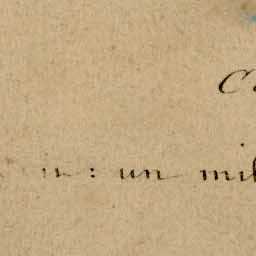 C
in : un mil